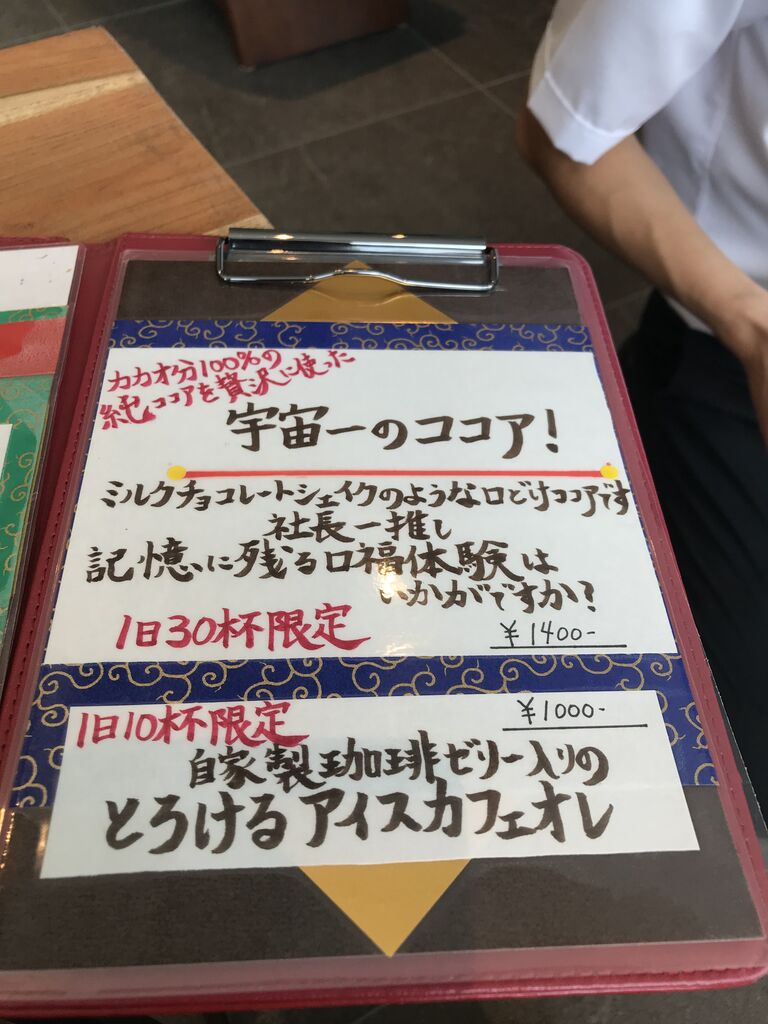 カカオ分100%の
純ココアを贅沢に使った
宇宙一のココア!
ミルクチョコレートシェイクのような口どけココアです
社長一推し
記憶に残る口福体験は
いかがですか?
1日30杯限定
¥1400-
1日10杯限定
¥1000-
自家製珈琲ゼリー入りの
とろけるアイスカフェオレ